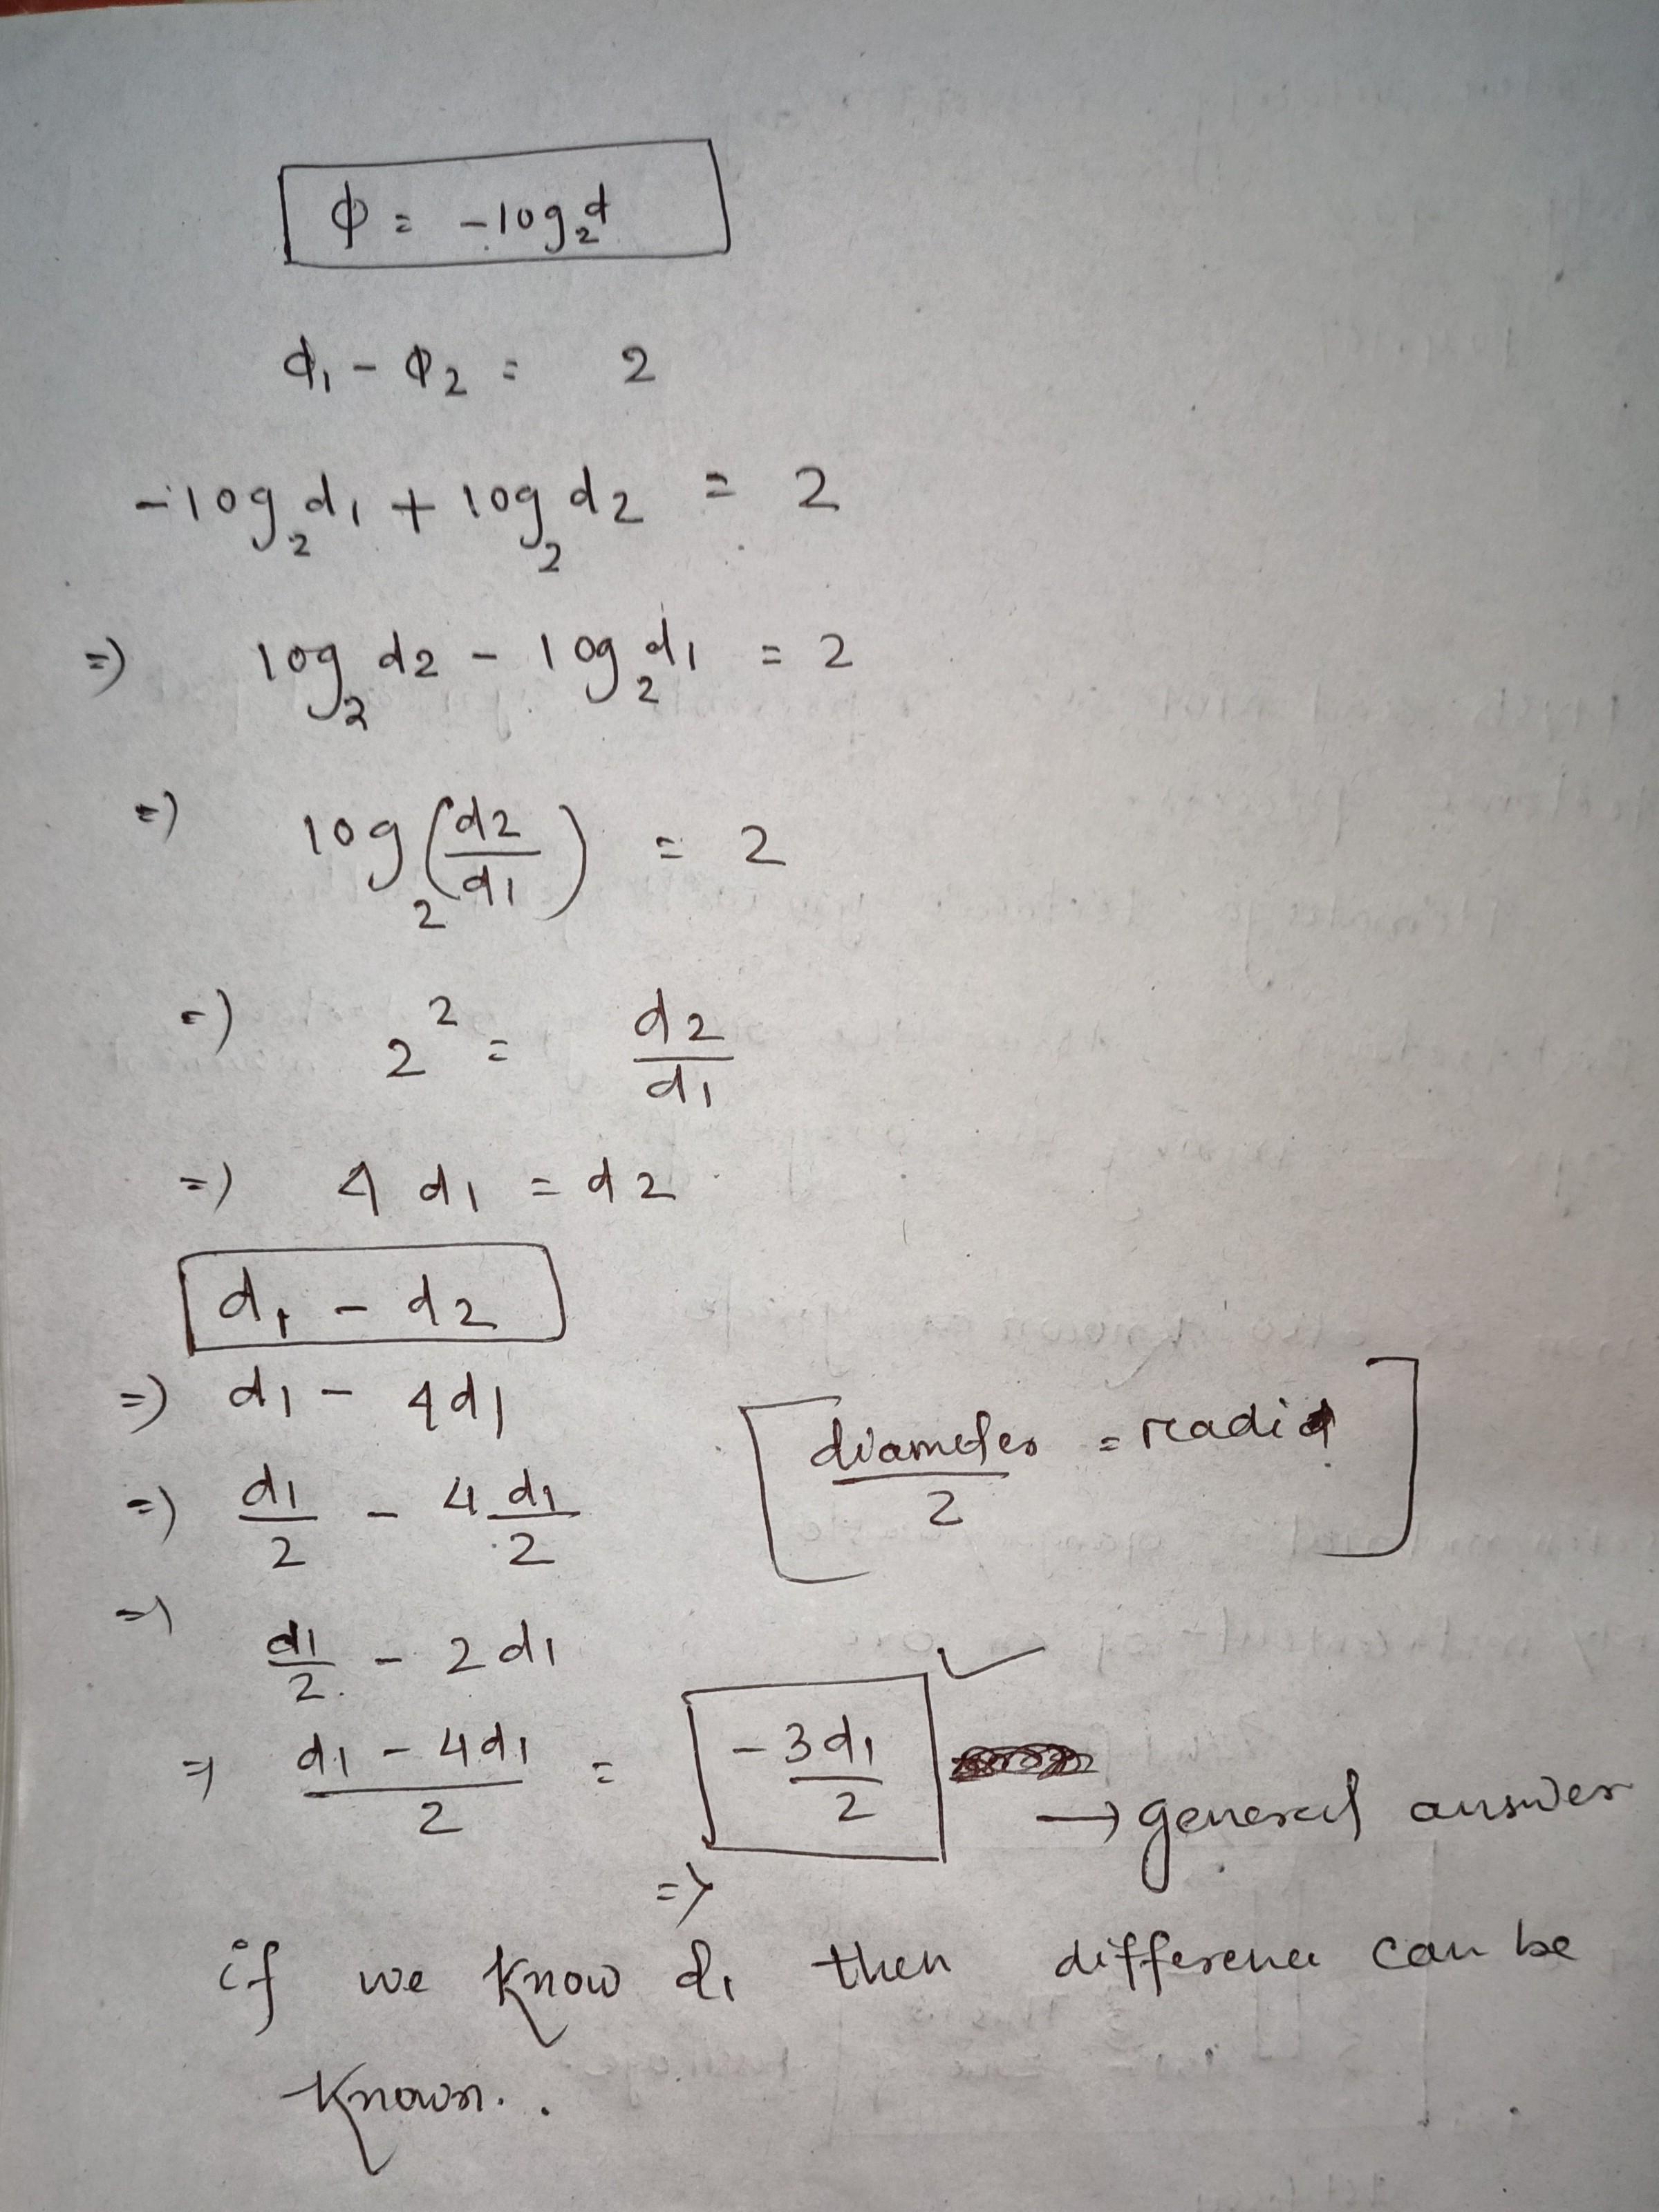 ϕ = -log₂d
ϕ₁ - ϕ₂ = 2
-log₂d₁ + log₂d₂ = 2
=) log₂d₂ - log₂d₁ = 2
=) log₂(d₂/d₁) = 2
=) 2² = d₂/d₁
=) 4d₁ = d₂
d₁ - d₂
=) d₁ - 4d₁
=) d₁/2 - 4d₁/2
[diameter/2 = radi]
=) d₁/2 - 2d₁
=) (d₁ - 4d₁)/2 = -3d₁/2 ✓
→ general answer
=)
if we know d₁ then difference can be
known..